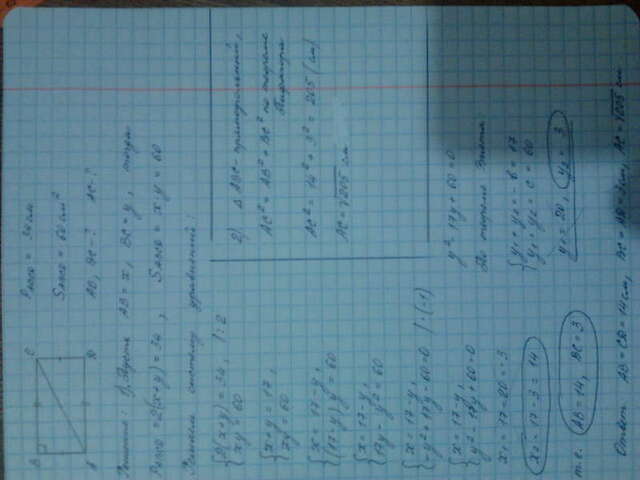 B C
A D
P_ABCD = 34 см
S_ABCD = 60 см²
AB, BC - ? AC - ?
Решение: 1). Пусть AB = x, BC = y, тогда
P_ABCD = 2(x+y) = 34, S_ABCD = x·y = 60
Решаем систему уравнений:
{2(x+y) = 34, | : 2
{xy = 60
{x+y = 17,
{xy = 60
{x = 17-y,
{(17-y)y = 60
{x = 17-y,
{17y - y² = 60
{x = 17-y,
{-y² + 17y - 60 = 0 | · (-1)
{x = 17-y,
{y² - 17y + 60 = 0
x₁ = 17 - 20 = -3
x₂ = 17 - 3 = 14
т.е. AB = 14, BC = 3
y² - 17y + 60 = 0
По теореме Виета
{y₁ + y₂ = -b = 17
{y₁ · y₂ = c = 60
y₁ = 20, y₂ = 3
2) Δ ABC - прямоугольный,
AC² = AB² + BC² по теореме
Пифагора
AC² = 14² + 3² = 205 (см)
AC = √205 см
Ответ: AB = CD = 14 см, BC = AD = 3 см, AC = √205 см